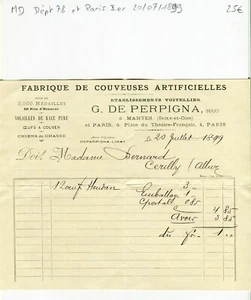 MD Dépt 78 et Paris Ier 20/07/1899 25€
FABRIQUE DE COUVEUSES ARTIFICIELLES
PLUS DE
2,000 MÉDAILLES
VOLAILLES DE RACE PURE
ŒUFS A COUVER
CHIENS DE CHASSE
ÉTABLISSEMENTS VOITELLIER
G. DE PERPIGNA, SUCCr
A MANTES (Seine-et-Oise)
et PARIS, 4, Place du Théâtre-Français, 4, PARIS
le 20 Juillet 1899
Doit Madame Bernard
Cerilly (Allier
1 Houdan 3 "
Emballage 1 "
Cpostal 0 85
4 85
Avoir 3 85
du fr. 1 "